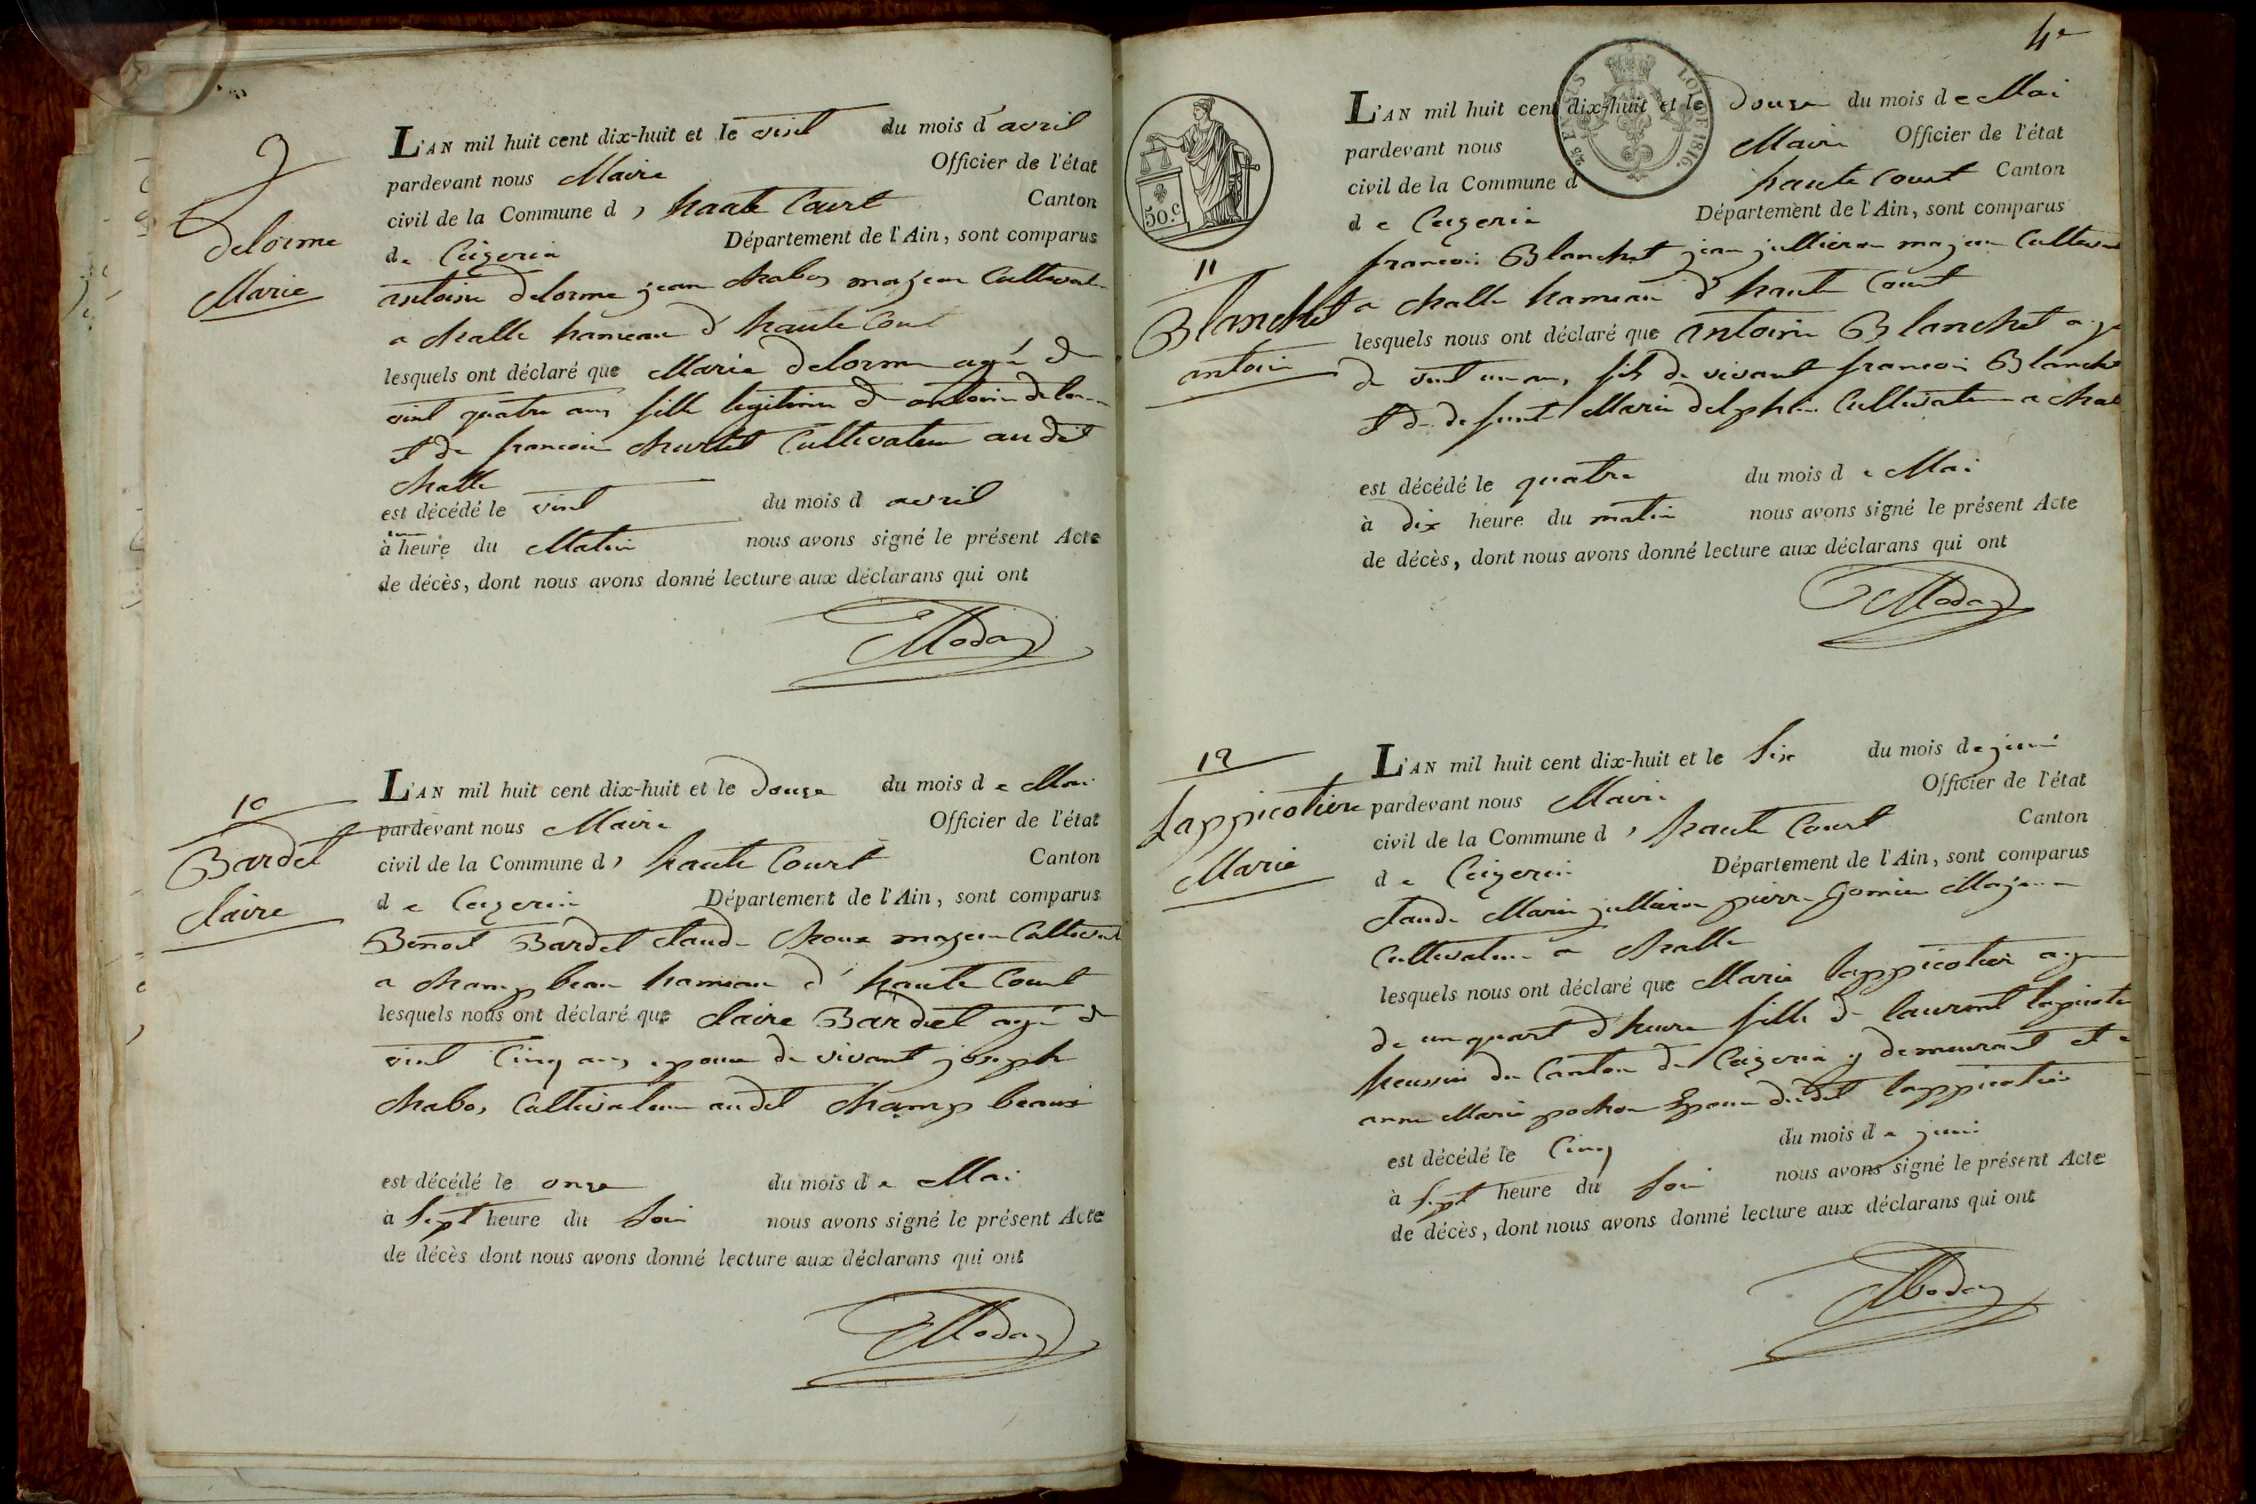 9
delorme
Marie
L'AN mil huit cent dix-huit et le vint du mois d'avril
pardevant nous Maire Officier de l'état
civil de la Commune d, haute Court Canton
de Ceizeria Département de l'Ain, sont comparus
antoine delorme jean chabos majeur Cultivat
a challe hameau d'haute Court
lesquels ont déclaré que Marie delorme agé de
vint quatre ans fille legitime de antoine delor
et de francoise churlet Cultivateur audit
challe
est décédé le vint du mois d avril
à heure du Matin nous avons signé le présent Acte
de décès, dont nous avons donné lecture aux déclarans qui ont
Moday
10
Bardet
claire
L'AN mil huit cent dix-huit et le douze du mois de Mai
pardevant nous Maire Officier de l'état
civil de la Commune d, haute Court Canton
de Ceizeria Département de l'Ain, sont comparus
Benoit Bardet claude choux majeur Cultivat
a champ beau hameau d'haute Court
lesquels nous ont déclaré que claire Bardet agé de
vint Cinq ans epouse de vivant joseph
chabos Cultivateur audit champ beau
est décédé le onze du mois de Mai
à Sept heure du Soir nous avons signé le présent Acte
de décès dont nous avons donné lecture aux déclarans qui ont
Moday
4e
50 c
25 CENTS
LOI DE 1816.
11
Blanchet
antoine
L'AN mil huit cent dix-huit et le douze du mois de Mai
pardevant nous Maire Officier de l'état
civil de la Commune d haute Court Canton
de Ceizeria Département de l'Ain, sont comparus
francois Blanchet jean jullieron majeur Cultivat
a challe hameau d'haute Court
lesquels nous ont déclaré que antoine Blanchet age
de vint un an, fils de vivant francois Blanche
et de defunt Marie delphin Cultivateur a chal
est décédé le quatre du mois de Mai
à dix heure du matin nous avons signé le présent Acte
de décès, dont nous avons donné lecture aux déclarans qui ont
Moday
12
Lappicotiere
Marie
L'AN mil huit cent dix-huit et le Six du mois de juin
pardevant nous Maire Officier de l'état
civil de la Commune d, haute Court Canton
de Ceizeria Département de l'Ain, sont comparus
claude Marie jullieron pierre Majeur
Cultivateur a challe
lesquels nous ont déclaré que Marie lappicotier age
de un quart d'heure fille de laurent lapicoti
heussier du Canton de Ceizeria y demeurant et
anne Marie pochon Epouse dudit lappicotier
est décédé le Cinq du mois de juin
à Sept heure du Soir nous avons signé le présent Acte
de décès, dont nous avons donné lecture aux déclarans qui ont
Moday